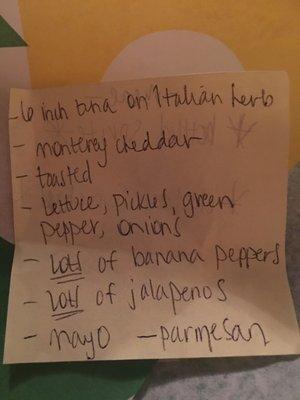 -6 inch tuna on Italian herb
- monterey cheddar
- toasted
- lettuce, pickles, green
pepper, onions
- lots of banana peppers
- lots of jalapenos
- mayo - parmesan